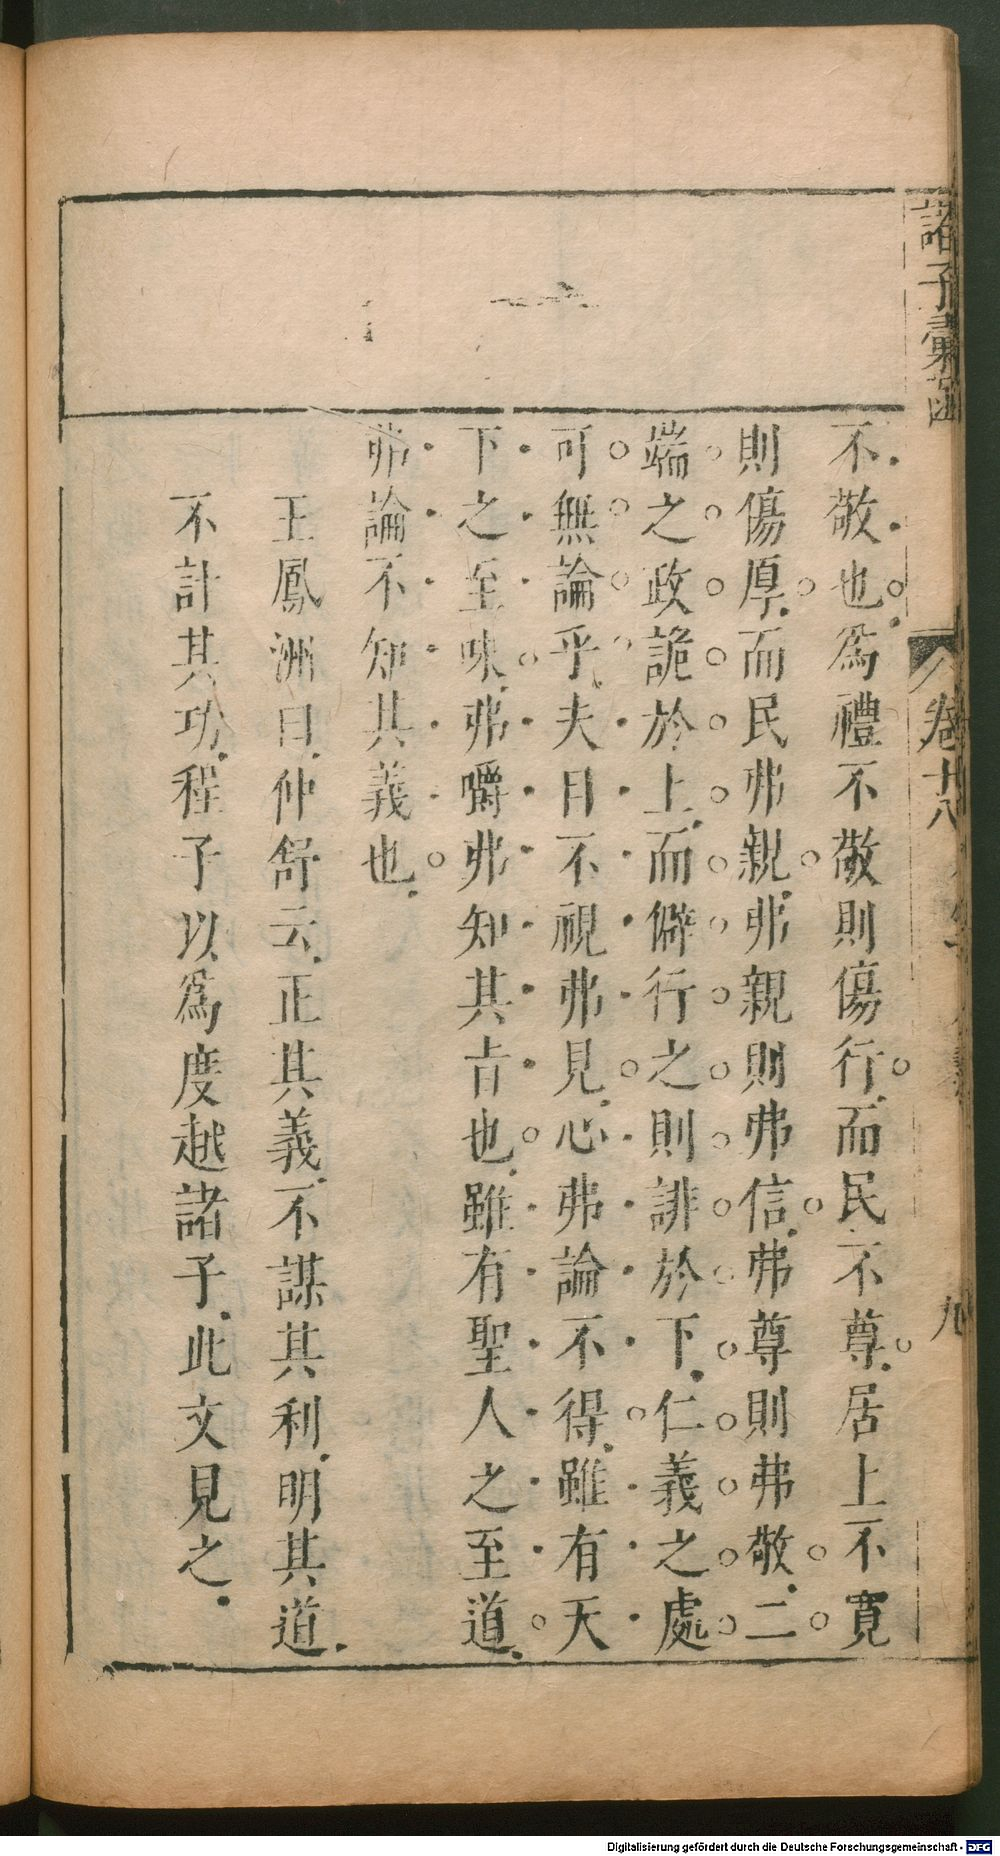 諸子彙函
卷十八
九
不敬也爲禮不敬則傷行而民不尊居上不寬
則傷厚而民弗親弗親則弗信弗尊則弗敬二
端之政詭於上而僻行之則誹於下仁義之處
可無論乎夫目不視弗見心弗論不得雖有天
下之至味弗嚼弗知其旨也雖有聖人之至道
弗論不知其義也
王鳳洲曰仲舒云正其義不謀其利明其道
不計其功程子以爲度越諸子此文見之
Digitalisierung gefördert durch die Deutsche Forschungsgemeinschaft - DFG